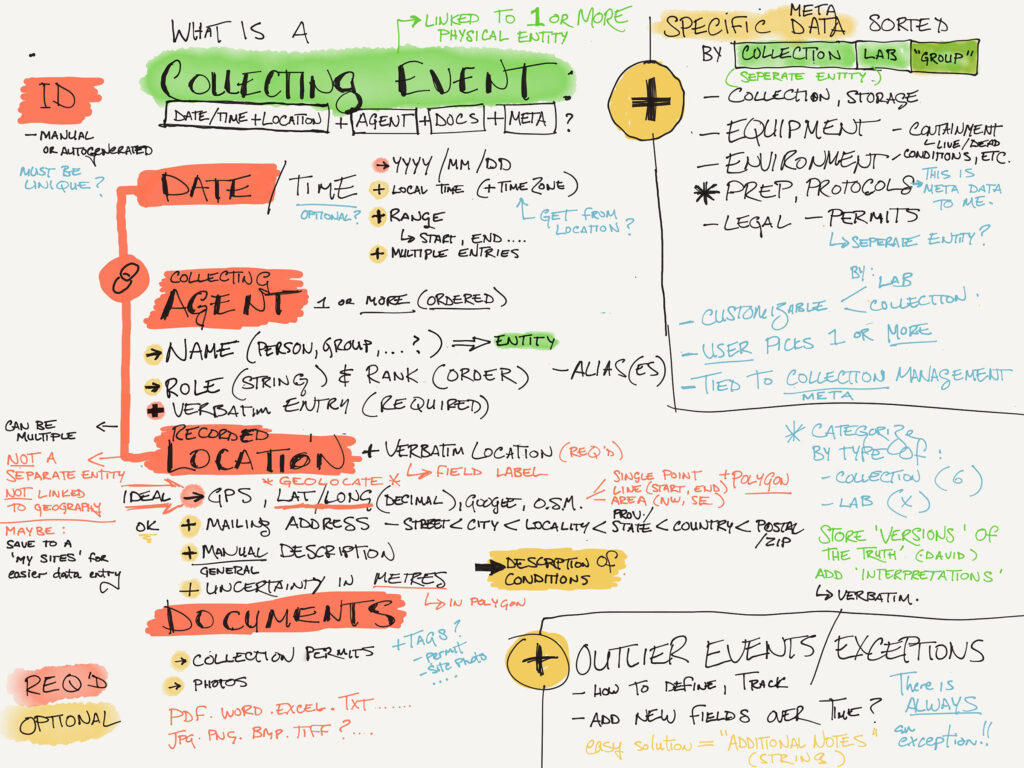 WHAT IS A
COLLECTING EVENT
→ LINKED TO 1 OR MORE
PHYSICAL ENTITY
DATE/TIME + LOCATION + AGENT + DOCS + META ?
ID
- MANUAL
OR AUTOGENERATED
MUST BE
UNIQUE?
DATE / TIME
OPTIONAL?
→ YYYY / MM / DD
+ LOCAL TIME (+ TIME ZONE)
GET FROM
LOCATION?
+ RANGE
↳ START, END ....
+ MULTIPLE ENTRIES
COLLECTING
AGENT 1 OR MORE (ORDERED)
→ NAME (PERSON, GROUP, ... ?) ⇒ ENTITY
→ ROLE (STRING) & RANK (ORDER) - ALIAS(ES)
+ VERBATIM ENTRY (REQUIRED)
RECORDED
LOCATION + VERBATIM LOCATION (REQ'D)
↳ FIELD LABEL
* GEOLOCATE *
CAN BE
MULTIPLE
NOT A
SEPARATE ENTITY
NOT LINKED
TO GEOGRAPHY
MAYBE:
SAVE TO A
'MY SITES' FOR
easier data entry
IDEAL → GPS, LAT/LONG (DECIMAL), GOOGLE, O.S.M.
SINGLE POINT + POLYGON
LINE (START, END)
AREA (NW, SE)
OK
+ MAILING ADDRESS - STREET < CITY < LOCALITY < STATE < COUNTRY < POSTAL
PROV/
/ZIP
+ MANUAL DESCRIPTION
GENERAL
+ UNCERTAINTY IN METRES
↳ IN POLYGON
→ DESCRIPTION OF
CONDITIONS
DOCUMENTS
→ COLLECTION PERMITS
→ PHOTOS
+ TAGS?
- permit
- site photo
....
PDF. WORD. EXCEL. TXT......
JPG. PNG. BMP. TIFF ?....
REQ'D
OPTIONAL
SPECIFIC DATA SORTED
META
BY COLLECTION LAB "GROUP"
(SEPERATE ENTITY.)
+
- COLLECTION, STORAGE
- EQUIPMENT - CONTAINMENT
- LIVE/DEAD
- ENVIRONMENT - CONDITIONS, ETC.
* PREP, PROTOCOLS
→ THIS IS
META DATA
TO ME.
- LEGAL - PERMITS
↳ SEPERATE ENTITY?
BY:
- CUSTOMIZABLE < LAB
COLLECTION.
- USER PICKS 1 OR MORE
- TIED TO COLLECTION MANAGEMENT
META
* CATEGORIZE
BY TYPE OF:
- COLLECTION (6)
- LAB (X)
STORE 'VERSIONS' OF
THE TRUTH' (DAVID)
ADD 'INTERPRETATIONS'
↳ VERBATIM.
+ OUTLIER EVENTS/EXCEPTIONS
- HOW TO DEFINE, TRACK
- ADD NEW FIELDS OVER TIME?
easy solution = "ADDITIONAL NOTES"
(STRING)
There is
ALWAYS
an
exception!!